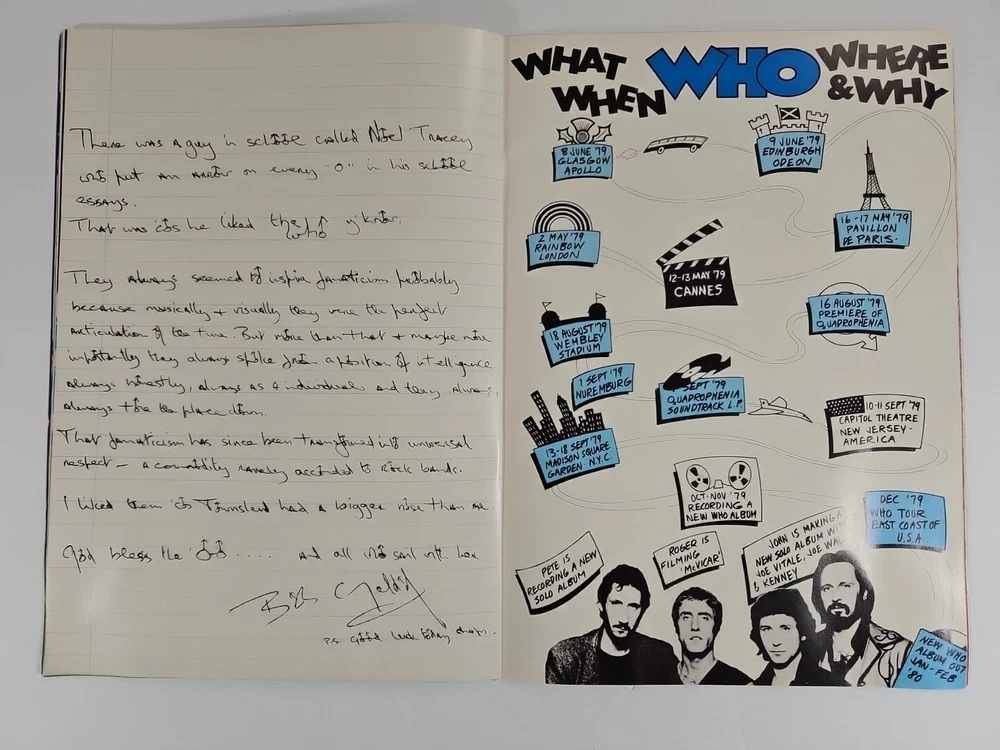 There was a guy in school called Noel Tracey
who put an arrow on every "O" in his school
essays.
That was cos he liked the Who y'know.
They always seemed to inspire fanaticism probably
because musically + visually they were the perfect
articulation of the time. But more than that + maybe more
importantly they always spoke from a position of intelligence.
Always honestly, always as 4 individuals and they always,
always tore the place down.
That fanaticism has since been transformed into universal
respect – a commodity rarely accorded to Rock bands.
I liked them cos Townshend had a bigger nose than me.
God bless the 'OO .... and all who sail with her
Bob Geldof
P.S. Good luck today chaps.
WHAT WHO WHERE
WHEN & WHY
8 JUNE '79
GLASGOW
APOLLO
9 JUNE '79
EDINBURGH
ODEON
16-17 MAY '79
PAVILLON
DE PARIS.
2 MAY '79
RAINBOW
LONDON
12-13 MAY '79
CANNES
16 AUGUST '79
PREMIERE OF
QUADROPHENIA
18 AUGUST '79
WEMBLEY
STADIUM
1 SEPT '79
NUREMBURG
SEPT '79
QUADROPHENIA
SOUNDTRACK L.P.
10-11 SEPT '79
CAPITOL THEATRE
NEW JERSEY-
AMERICA
13-18 SEPT '79
MADISON SQUARE
GARDEN·N.Y.C
OCT-NOV '79
RECORDING A
NEW WHO ALBUM
DEC '79
WHO TOUR
EAST COAST OF
U.S.A.
PETE IS
RECORDING A NEW
SOLO ALBUM
ROGER IS
FILMING
'McVICAR'
JOHN IS MAKING A
NEW SOLO ALBUM WITH
JOE VITALE, JOE
& KENNEY
NEW WHO
ALBUM OUT
JAN-FEB
'80